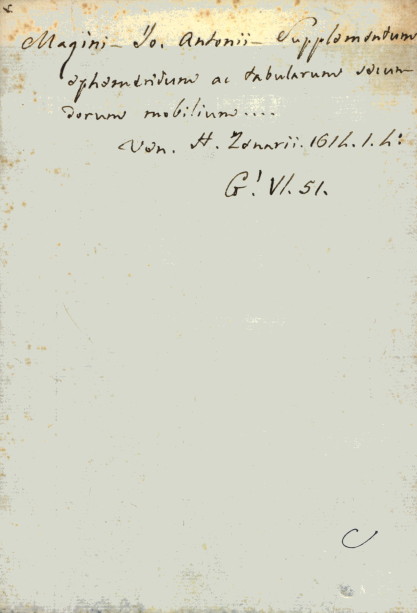 Magini - Io. Antonii - Supplementum
ephemeridum ac tabularum secun
dorum mobilium....
Ven. H. Zenarii. 1614. 1. 4°.
G! VI. 51.
C